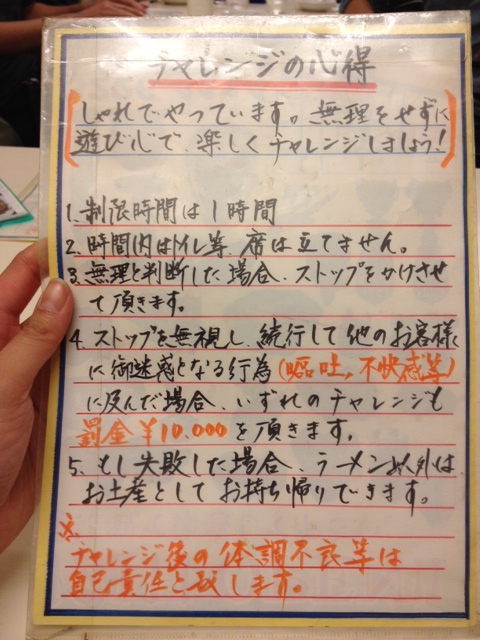 チャレンジの心得
しゃれでやっています。無理をせずに
遊び心で、楽しくチャレンジしましょう!
1. 制限時間は1時間
2. 時間内はトイレ等、席は立てません。
3. 無理と判断した場合、ストップをかけさせ
て頂きます。
4. ストップを無視し、続行して他のお客様
に御迷惑となる行為(嘔吐、不快感等)
に及んだ場合、いずれのチャレンジも
罰金¥10,000を頂きます。
5. もし失敗した場合、ラーメン以外は
お土産としてお持ち帰りできます。
※
チャレンジ後の体調不良等は
自己責任と致します。